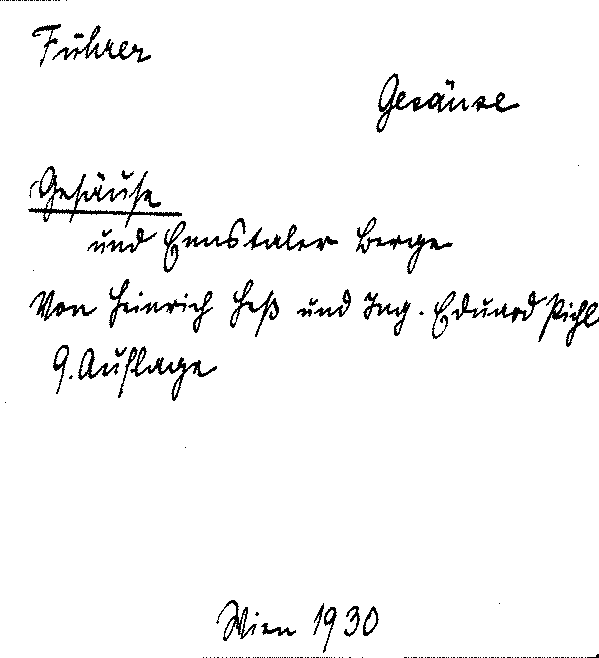 Führer
Gesäuse
Gesäuse
und Ennstaler Berge
Von Heinrich Heß und Ing. Eduard Pichl
9. Auflage
Wien 1930